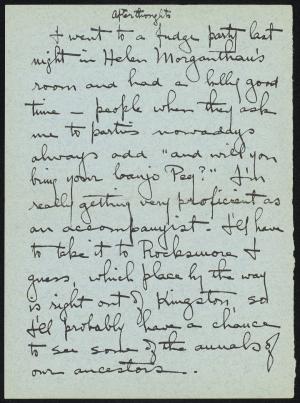 Afterthoughts
I went to a fudge party last
night in Helen Morganthau's
room and had a bully good
time – people when they ask
me to parties nowadays
always add "and will you
bring your banjo Peg?" I'm
really getting very proficient as
an accompanyist. I'll have
to take it to Rocksmore I
guess, which place by the way
is right out of Kingston, so
I'll probably have a chance
to see some of the annals of
our ancestors.